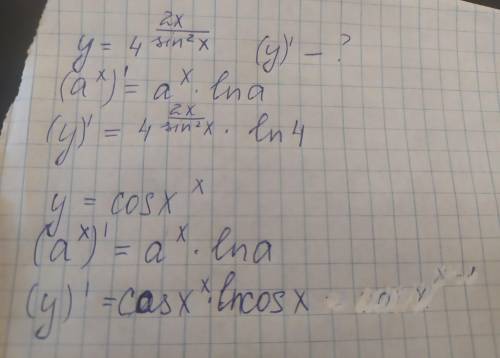 y = 4^(2x/sin²x) (y)' - ?
(a^x)' = a^x · ln a
(y)' = 4^(2x/sin²x) · ln 4
y = cosx^x
(a^x)' = a^x · ln a
(y)' = cosx^x · lncosx